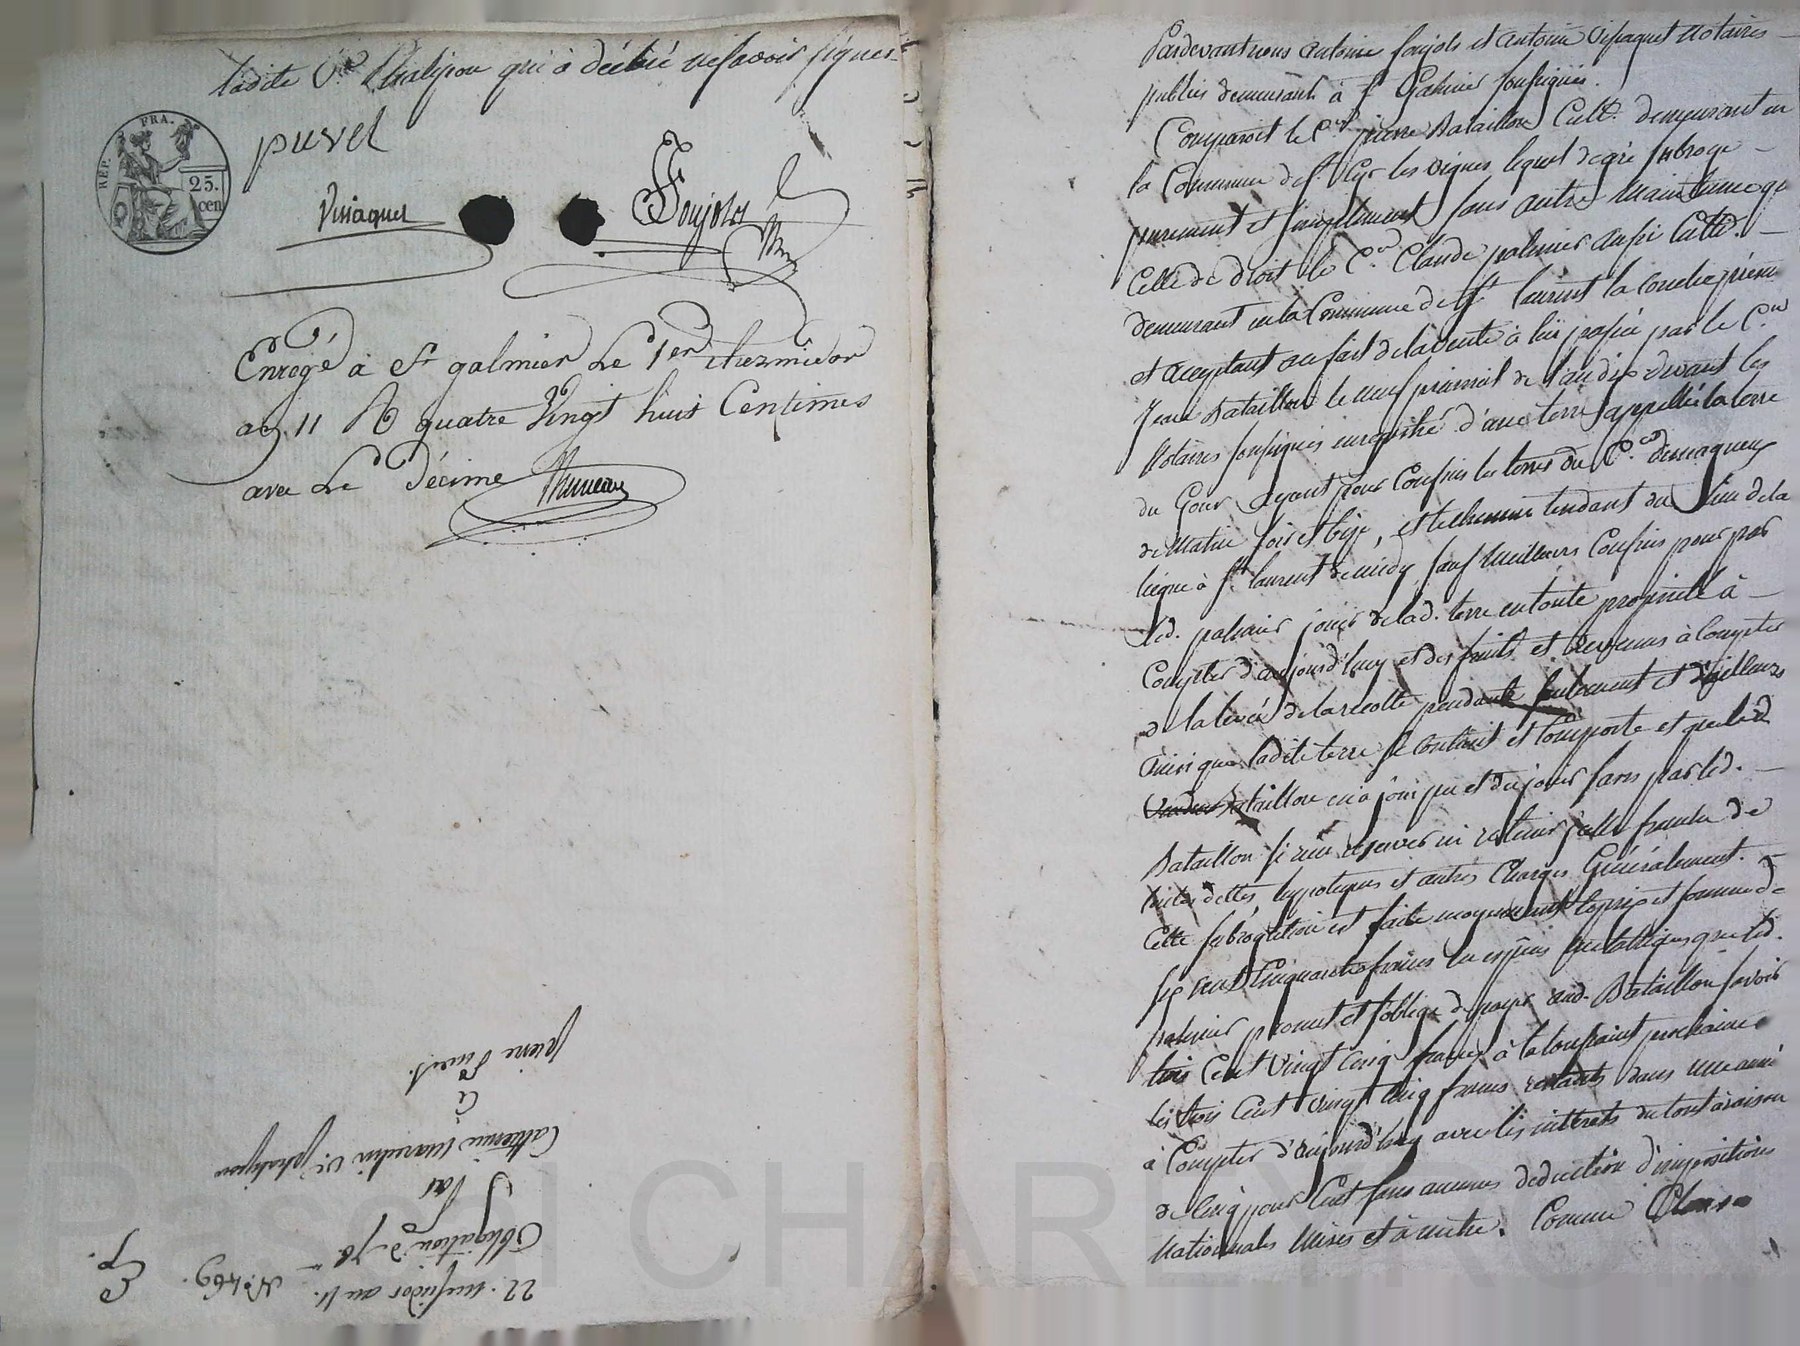 ladite Ve. Phalipon qui a déclaré ne savoir signer
REP. FRA.
25.
cen
puvel
Vissaguet
Soujols
Enregé à St galmier Le 1er thermidor
an 11 R quatre Vingt huit Centimes
avec Le Décime
22. messidor an 11. N° 469. Ep.
Obligation de 78
par
Catherine Marechin Ve. phalipon
à
pierre Puvel.
Pardevant nous antoine Soujols et antoine Vissaguet Notaires
publics demeurant à St Galmier soussignés.
Comparoit le Cen. pierre Bataillon Cultr. demeurant en
la Commune de St Cyr les vignes lequel de gré subroge
purement et simplement sans autre maintenue que
Celle de droit le Cen. Claude palmier aussi Cultr.
demeurant en la Commune de St laurent la conche présent
et acceptant au fait de la vente à lui passée par le Cen
Jean Bataillon le neuf prairial de l'an dix devant les
Notaires soussignés enregistré d'une terre appellée la terre
du Gour ayant pour Confins les terres du Cen.
de Matin soir et bise, et le chemin tendant du lieu de la
liegue à St laurent de midy sauf meilleurs Confins pour par
led. palmier jouir de lad. terre en toute propriété à
Compter d'aujourd'huy et des fruits et revenus à Compter
de la levée de la recolte pendante seulement et d'ailleurs
ainsi que ladite terre se contient et comporte et que led
Bataillon en a joui pu et du jouir sans par led.
Bataillon se rien reserver ni retenir, quitte franche de
toutes dettes hypoteques et autres Charges Généralement.
Cette subrogation est faite moyennant le prix et somme de
six cent Cinquante francs en espèces metalliques que led.
palmier promet et s'oblige de payer aud. Bataillon savoir
trois Cent vingt cinq francs à la toussaint prochaine
les trois Cent vingt cinq francs restants dans une année
à Compter d'aujourd'huy avec les interets du tout à raison
de Cinq pour Cent sans aucunes deduction d'impositions
Nationnales Mises et à mettre. Comme
Pascal CHAREYRON